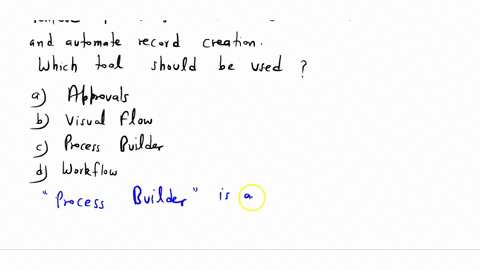 and automate record creation.
Which tool should be used ?
a) Approvals
b) Visual Flow
c) Process Builder
d) Workflow
"Process Builder" is a